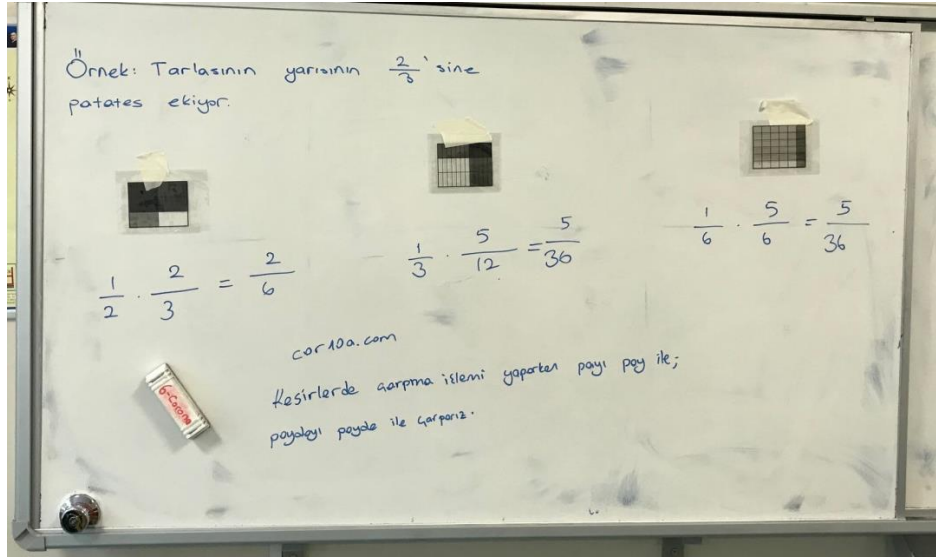 Örnek: Tarlasının yarısının 2/3'sine
patates ekiyor.
1/2 . 2/3 = 2/6
1/3 . 5/12 = 5/36
1/6 . 5/6 = 5/36
cor10a.com
Kesirlerde çarpma işlemi yaparken payı pay ile;
paydayı payda ile çarparız.
6-Corona